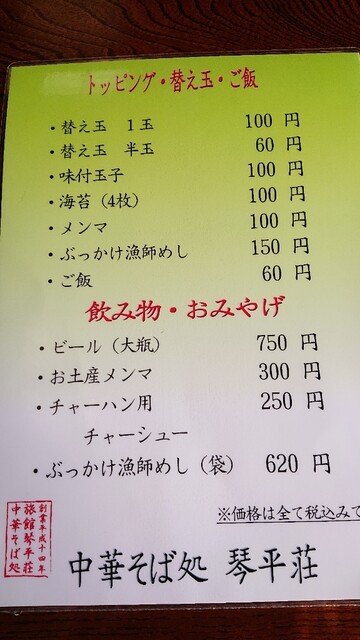 トッピング・替え玉・ご飯
・替え玉 1玉 100 円
・替え玉 半玉 60 円
・味付玉子 100 円
・海苔(4枚) 100 円
・メンマ 100 円
・ぶっかけ漁師めし 150 円
・ご飯 60 円
飲み物・おみやげ
・ビール(大瓶) 750 円
・お土産メンマ 300 円
・チャーハン用 250 円
チャーシュー
・ぶっかけ漁師めし(袋) 620 円
※価格は全て税込みで
創業平成十四年
旅館琴平荘
中華そば処
中華そば処 琴平荘